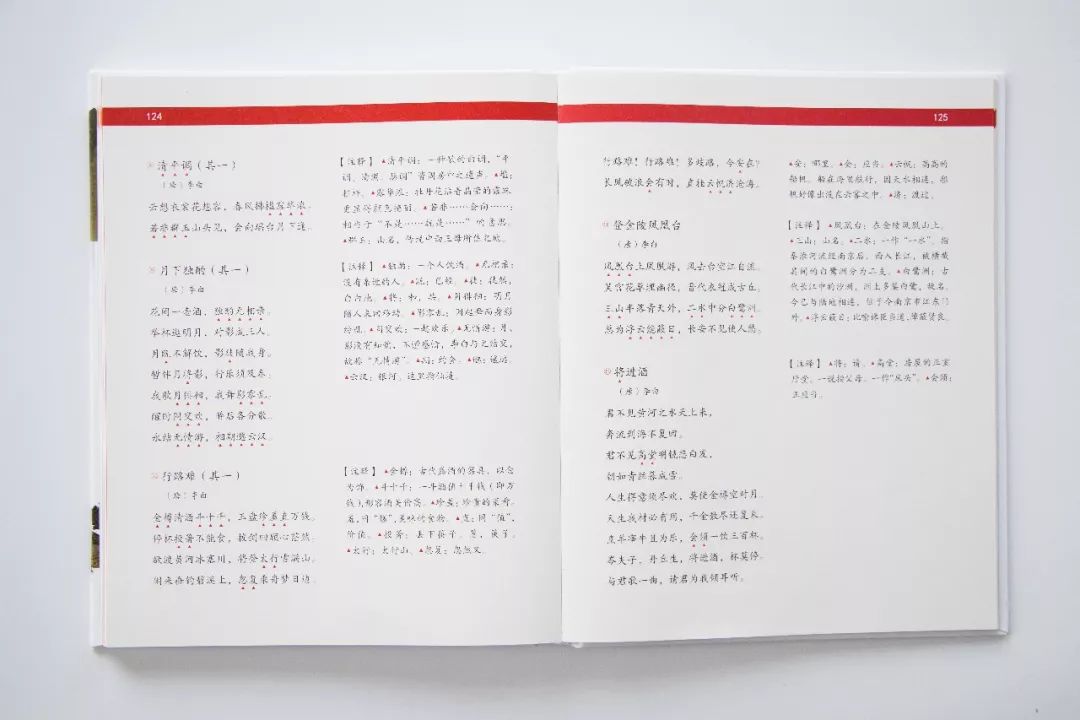 124
清平调（其一）
（唐）李白
云想衣裳花想容，春风拂槛露华浓。
若非群玉山头见，会向瑶台月下逢。
【注释】▲清平调：一种装的曲调，“平
调、清调、瑟调”皆周房中之遗声。▲槛：
栏杆。▲露华浓：牡丹花沾着晶莹的露珠
更显得颜色艳丽。▲若非……会向……：
相当于“不是……就是……”的意思。
▲群玉：山名，传说中西王母所住之地。
月下独酌（其一）
（唐）李白
花间一壶酒，独酌无相亲。
举杯邀明月，对影成三人。
月既不解饮，影徒随我身。
暂伴月将影，行乐须及春。
我歌月徘徊，我舞影零乱。
醒时同交欢，醉后各分散。
永结无情游，相期邈云汉。
【注释】▲独酌：一个人饮酒。▲无相亲：
没有亲近的人。▲既：已经。▲徒：徒然，
白白地。▲将：和，共。▲月徘徊：明月
随人来回移动。▲影零乱：因起舞而身影
纷乱。▲同交欢：一起欢乐。▲无情游：月、
影没有知觉，不懂感情，李白与之结交，
故称“无情游”。▲期：约会。▲邈：遥远。
▲云汉：银河。这里指仙境。
行路难（其一）
（唐）李白
金樽清酒斗十千，玉盘珍羞直万钱。
停杯投箸不能食，拔剑四顾心茫然。
欲渡黄河冰塞川，将登太行雪满山。
闲来垂钓碧溪上，忽复乘舟梦日边。
【注释】▲金樽：古代盛酒的器具，以金
为饰。▲斗十千：一斗酒值十千钱（即万
钱），形容酒美价高。▲珍羞：珍贵的菜肴。
羞，同“馐”，美味的食物。▲直：同“值”，
价值。▲投箸：丢下筷子。箸，筷子。
▲太行：太行山。▲忽复：忽然又。
125
行路难！行路难！多歧路，今安在？
长风破浪会有时，直挂云帆济沧海。
▲安：哪里。▲会：应当。▲云帆：高高的
船帆。船在海里航行，因天水相连，船
帆好像出没在云雾之中。▲济：渡过。
登金陵凤凰台
（唐）李白
凤凰台上凤凰游，凤去台空江自流。
吴宫花草埋幽径，晋代衣冠成古丘。
三山半落青天外，二水中分白鹭洲。
总为浮云能蔽日，长安不见使人愁。
【注释】▲凤凰台：在金陵凤凰山上。
▲三山：山名。▲二水：一作“一水”。指
秦淮河流经南京后，西入长江，被横截
其间的白鹭洲分为二支。▲白鹭洲：古
代长江中的沙洲，洲上多集白鹭，故名。
今已与陆地相连，位于今南京市江东门
外。▲浮云蔽日：比喻谗臣当道，障蔽贤良。
将进酒
（唐）李白
君不见黄河之水天上来，
奔流到海不复回。
君不见高堂明镜悲白发，
朝如青丝暮成雪。
人生得意须尽欢，莫使金樽空对月。
天生我材必有用，千金散尽还复来。
烹羊宰牛且为乐，会须一饮三百杯。
岑夫子，丹丘生，将进酒，杯莫停。
与君歌一曲，请君为我倾耳听。
【注释】▲将：请。▲高堂：房屋的正室
厅堂。一说指父母。一作“床头”。▲会须：
正应当。